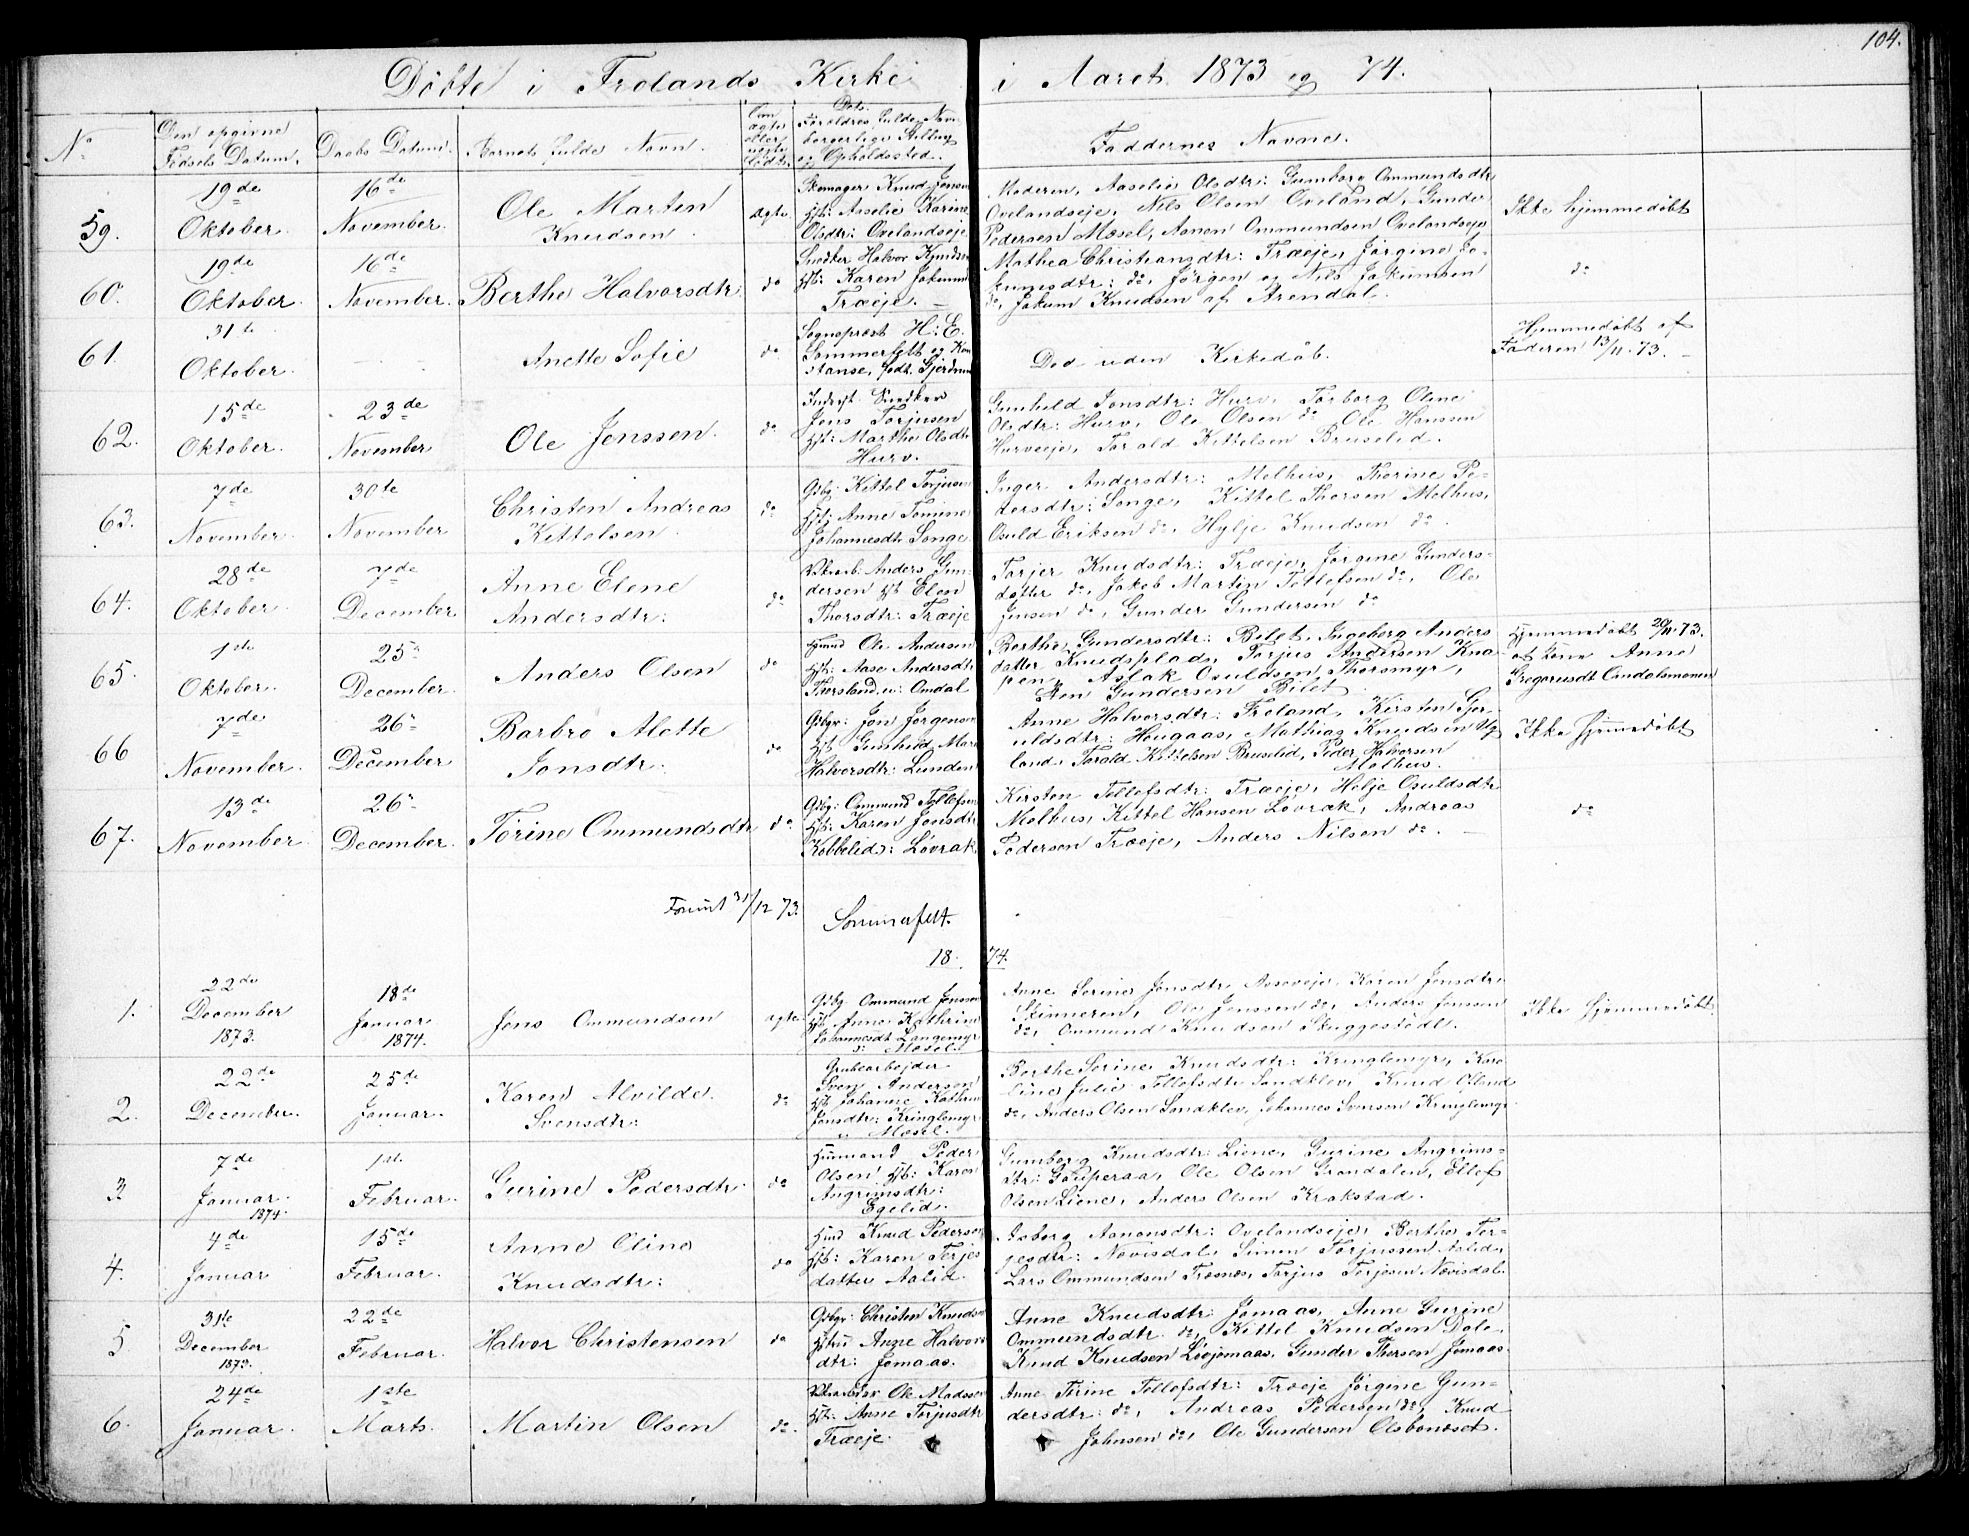 104.
Döbte i Frolands Kirke i Aaret 1873 og 74.
No
Den opgivne
Födsels Datum.
Daabs Datum.
Barnets fulde Navn.
Om
ægte
eller
uægte
födt.
Dets
Forældres fulde Navn
borgerlige Stilling
og Opholdssted.
Faddernes Navne.
59.
19de
Oktober.
16de
November.
Ole Marten
Knudsen
ægte
Skomager Knud Jensen
Hst: Asselie Karine
Olsdtr: Ovelandseje
Moderen, Aaselie Olsdtr: Gumborg Ommundsdtr
Ovelandseje, Nils Olsen Oveland, Gunder
Pedersen Mæsel, Aanon Ommundsen Ovelandseje
Ikke hjemmedöbt
60.
19de
Oktober.
16de
November.
Berthe Halvorsdtr
do
Snedker Halvor
Hst: Karen
Træeje.
Mathea Christiansdtr: Træeje, Jörgine Ja-
kumsdtr: do, Jörgen og Nils Jakumsen
do, Jakum Knudsen af Arendal.
do
61.
31te
Oktober.
Anette Sofie
do
Sognepræst H: E.
Sommerfelt og Kon
stanse, födt Gjerdrum
Död uden Kirkedåb.
Hjemmedöbt af
Faderen 13/11.73.
62.
15de
Oktober.
23de
November
Ole Jenssen.
do
Inderst Snedker
Jens Torjusen
Hst: Marthe Olsdtr
Hurv.
Gunhild Jonsdtr: Hurv, Torborg Oline
Olsdtr: Hurv, Ole Olsen do Ole Hanssen
Hurveeje, Torald Kittelsen Bruselid.
63.
7de
November.
30te
November
Christen Andreas
Kittelsen.
do
Gdbg: Kittel Torjusen
Hst: Anne Tomine
Johannesdtr Songe
Inger Andersdtr: Molhus, Thorine Pe-
dersdtr: Songe, Kittel Thorsen Molhus,
Osuld Eriksen do, Hylje Knudsen do.
64.
28de
Oktober.
7de
December.
Anne Elene
Andersdtr:
do
Anders Gun-
dersen Hst Elen
Thorsdtr: Træeje
Torjer Knudsdtr: Træeje, Jörgine Gunders-
datter do, Jakob Martin Tellefsen do, Ole
Jensen do, Gunder Gundersen do
65.
1ste
Oktober.
25de
December.
Anders Olsen
do
Hmd Ole Andersen
Hst: Aase Andersdtr
Omdal
Berthe Gundersdtr: Bilet, Ingeborg Anders
datter Knudsplads, Torjus Andersen Kna
pen, Aslak Osuldsen Thorsmyr,
Sten Gundersen Bilet
Hjemmedöbt 20/11.73.
af Anne
Gregorusdt
66
7de
November.
26de
December
Barbro Alette
Jonsdtr.
do
Gdbgr: Jon Jörgensen
Hst Gunhild Mari
Halvorsdtr: Lunden
Anne Halvorsdtr: Froland, Kirsten Gjer-
uldsdtr: Hougaas, Mathias Knudsen Ug
land, Torald Kittelsen Bruselid, Peder Halvorsen
Molhus.
Ikke hjemmedöbt
67.
13de
November.
26de
December.
Torine Ommundsdtr
do
Gdbg: Ommund Tellefsen
Hst: Karen Jensdtr
Kobbelid: Lövrak
Kirsten Tellefsdtr: Træeje, Helje Osuldsdtr
Molhus, Kittel Hansen Lövrak, Andreas
Pedersen Træeje, Anders Nilsen do.
do
31/12 73. Sommerfelt.
1874.
1.
22de
December
1873.
18de
Januar
1874.
Jens Ommundsen
ægte
Gdbg Ommund Jenssen
Hst: Anne Kathrine
Johannesdt Langemyr
Mæsel.
Anne Serine Jensdtr, Karen Jensdtr:
Skinneren, Ole Jenssen do, Anders Jenssen
do, Ommund Knudsen Skuggestödl.
Ikke hjemmedöbt
2.
22de
December.
25de
Januar.
Karen Alvilde
Svensdtr:
do
Grubearbejder
Sven Andersen
Hst Johanne Kathrine
Jensdtr: Kringlemyr
Mæsel.
Berthe Serine Knudsdtr: Kringlemyr, Karo
line Julie Tellefsdtr Sandklev, Knud
do, Anders Olsen Sandklev, Johannes Svenson Kringlemyr
3
7de
Januar.
1874.
1ste
Februar.
Gurine Pedersdtr.
do
Husmand Peder
Olsen Hst: Karen
Angrimsdtr:
Egelid.
Gumborg Knudsdtr: Liene, Gurine Angrims-
dtr: Gauperaa, Ole Olsen Gröndalen, Ellef
Olsen Liene, Anders Olsen Krakstad.
4.
4de
Januar
15de
Februar.
Anne Oline
Knudsdtr:
do
Hmd Knud Pedersen
Hst: Karen Terjes
datter Aalid.
Goborg Aanonsdtr: Ovelandseje, Berthe Ter-
jesdtr: Nævisdal, Simen Torjussen Aalid,
Lars Ommundsen Træsnæs, Torjus Terjesen Nævisdal.
5
31te
December
1873.
22de
Februar.
Halvor Christensen
do
Gdbgr: Christen Knudsen
Hstru Anne Halvors
dtr: Jomaas.
Anne Knudsdtr: Jomaas, Anne Gurine
Ommundsdtr. do, Kittel Knudsen Dale,
Knud Knudsen Lövjomaas, Gunder Thorsen Jomaas.
6.
24de
Januar.
1ste
Marts.
Martin Olsen
do.
Ole Madssen
Hst: Anne Torjusdtr
Træeje.
Anne Tirine Tellefsdtr: Træeje Jörgine Gun-
dersdtr: do, Andreas Pedersen do, Knud
Johnsen do, Ole Gundersen Olsbonæset.